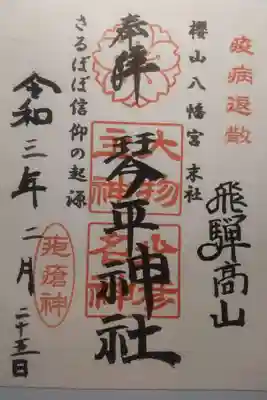 疫病退散
飛騨高山
櫻山八幡宮 末社
奉拝
琴平神社
大物主神
少彦名神
さるぼぼ信仰の起源
疱瘡神
令和三年二月二十五日